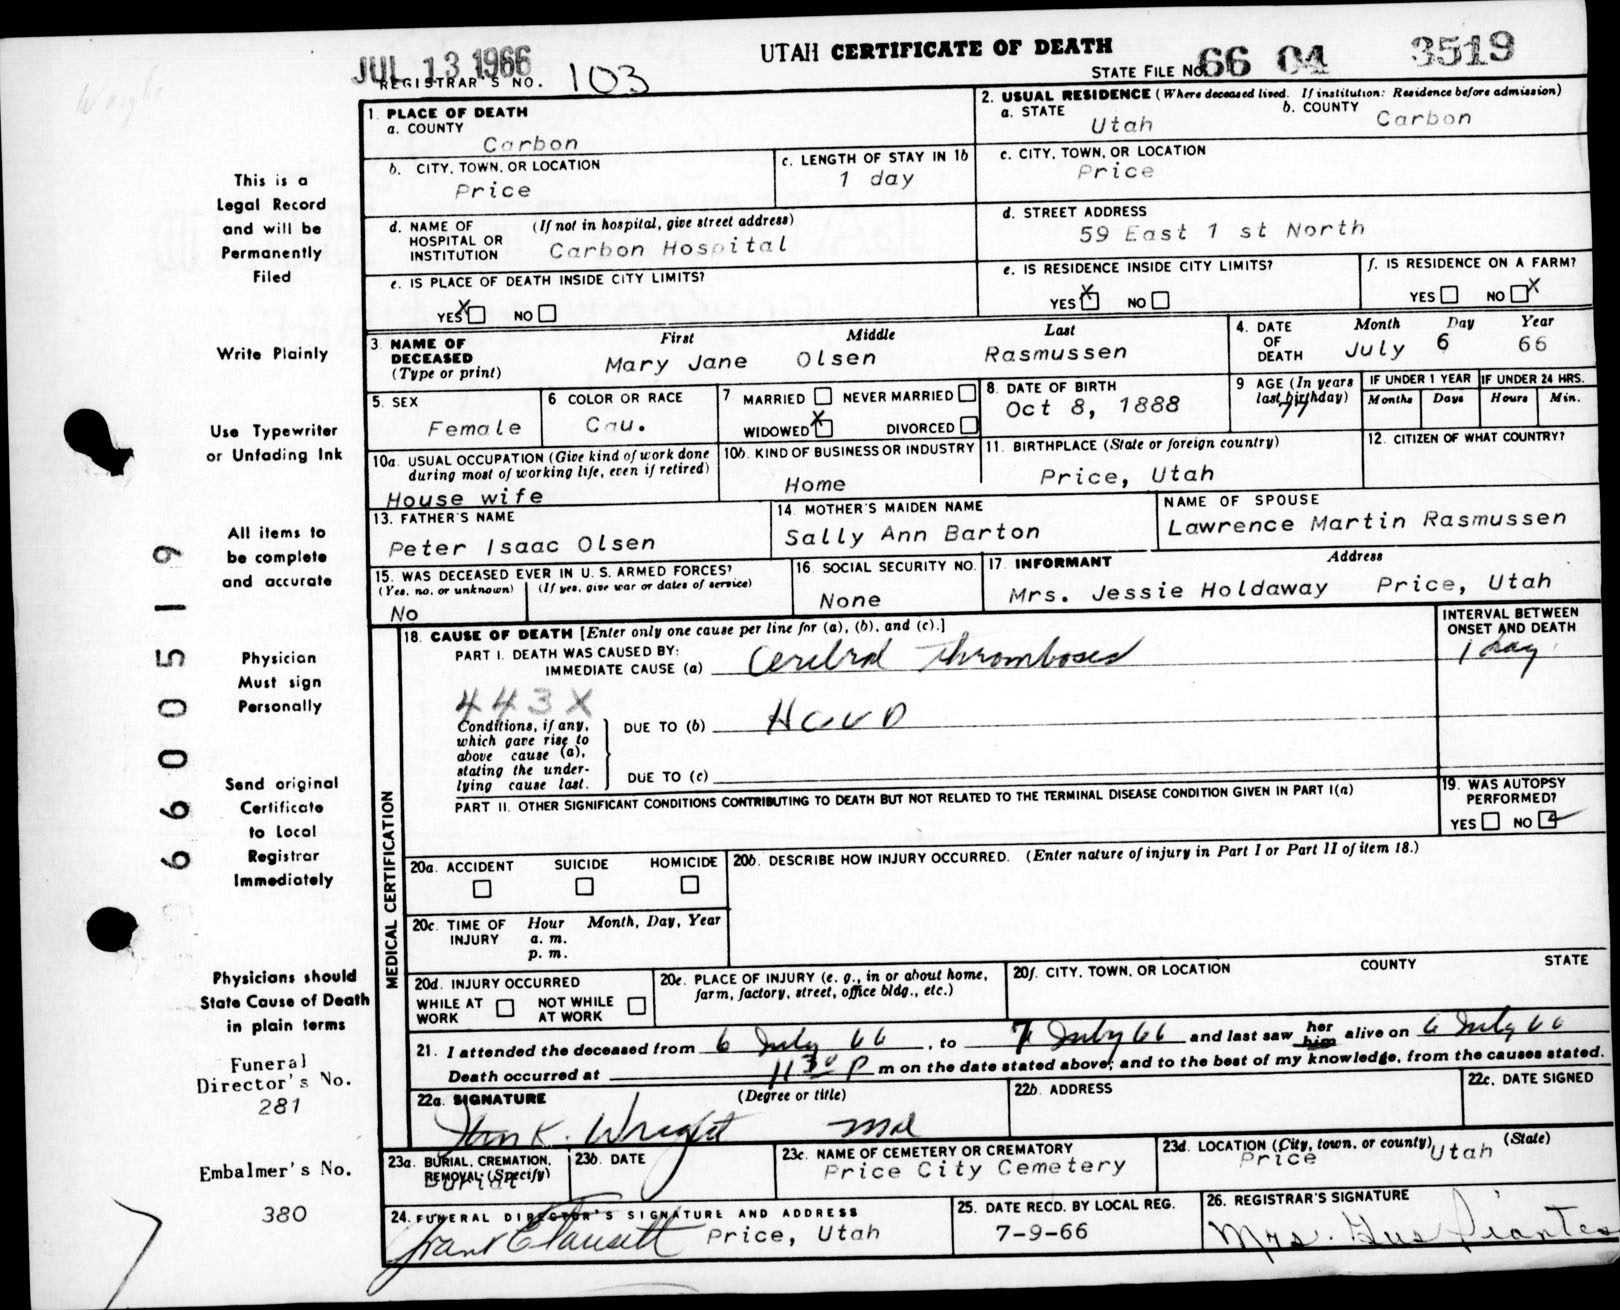 JUL 13 1966
UTAH CERTIFICATE OF DEATH
REGISTRAR'S NO. 103
STATE FILE NO. 66 04 3519
This is a
Legal Record
and will be
Permanently
Filed
Write Plainly
Use Typewriter
or Unfading Ink
All items to
be complete
and accurate
Physician
Must sign
Personally
Send original
Certificate
to Local
Registrar
Immediately
Physicians should
State Cause of Death
in plain terms
Funeral
Director's No.
281
Embalmer's No.
380
66000519
1. PLACE OF DEATH
a. COUNTY
Carbon
b. CITY, TOWN, OR LOCATION
Price
c. LENGTH OF STAY IN 1b
1 day
d. NAME OF HOSPITAL OR INSTITUTION (If not in hospital, give street address)
Carbon Hospital
e. IS PLACE OF DEATH INSIDE CITY LIMITS?
YES X NO
2. USUAL RESIDENCE (Where deceased lived. If institution: Residence before admission)
a. STATE
Utah
b. COUNTY
Carbon
c. CITY, TOWN, OR LOCATION
Price
d. STREET ADDRESS
59 East 1 st North
e. IS RESIDENCE INSIDE CITY LIMITS?
YES X NO
f. IS RESIDENCE ON A FARM?
YES NO X
3. NAME OF DECEASED (Type or print)
First Middle Last
Mary Jane Olsen Rasmussen
4. DATE OF DEATH
Month Day Year
July 6 66
5. SEX
Female
6 COLOR OR RACE
Cau.
7 MARRIED NEVER MARRIED
WIDOWED X DIVORCED
8. DATE OF BIRTH
Oct 8, 1888
9 AGE (In years last birthday)
77
IF UNDER 1 YEAR
Months Days
IF UNDER 24 HRS.
Hours Min.
10a. USUAL OCCUPATION (Give kind of work done during most of working life, even if retired)
House wife
10b. KIND OF BUSINESS OR INDUSTRY
Home
11. BIRTHPLACE (State or foreign country)
Price, Utah
12. CITIZEN OF WHAT COUNTRY?
13. FATHER'S NAME
Peter Isaac Olsen
14. MOTHER'S MAIDEN NAME
Sally Ann Barton
NAME OF SPOUSE
Lawrence Martin Rasmussen
15. WAS DECEASED EVER IN U. S. ARMED FORCES?
(Yes, no, or unknown) (If yes, give war or dates of service)
No
16. SOCIAL SECURITY NO.
None
17. INFORMANT Address
Mrs. Jessie Holdaway Price, Utah
MEDICAL CERTIFICATION
18. CAUSE OF DEATH [Enter only one cause per line for (a), (b), and (c).]
INTERVAL BETWEEN ONSET AND DEATH
PART I. DEATH WAS CAUSED BY:
IMMEDIATE CAUSE (a) Cerebral Thromboses 1 day
443X
Conditions, if any, which gave rise to above cause (a), stating the underlying cause last.
DUE TO (b) HCVD
DUE TO (c)
PART II. OTHER SIGNIFICANT CONDITIONS CONTRIBUTING TO DEATH BUT NOT RELATED TO THE TERMINAL DISEASE CONDITION GIVEN IN PART I(a)
19. WAS AUTOPSY PERFORMED?
YES NO
20a. ACCIDENT SUICIDE HOMICIDE
20b. DESCRIBE HOW INJURY OCCURRED. (Enter nature of injury in Part I or Part II of item 18.)
20c. TIME OF INJURY Hour Month, Day, Year
a. m.
p. m.
20d. INJURY OCCURRED
WHILE AT WORK NOT WHILE AT WORK
20e. PLACE OF INJURY (e. g., in or about home, farm, factory, street, office bldg., etc.)
20f. CITY, TOWN, OR LOCATION COUNTY STATE
21. I attended the deceased from 6 July 66, to 7 July 66 and last saw her him alive on 6 July 66
Death occurred at 11 30 P m on the date stated above; and to the best of my knowledge, from the causes stated.
22a. SIGNATURE (Degree or title)
K. Wright MD
22b. ADDRESS
22c. DATE SIGNED
23a. BURIAL, CREMATION, REMOVAL (Specify)
Burial
23b. DATE
23c. NAME OF CEMETERY OR CREMATORY
Price City Cemetery
23d. LOCATION (City, town, or county) (State)
Price Utah
24. FUNERAL DIRECTOR'S SIGNATURE AND ADDRESS
Price, Utah
25. DATE RECD. BY LOCAL REG.
7-9-66
26. REGISTRAR'S SIGNATURE
Mrs. Gus